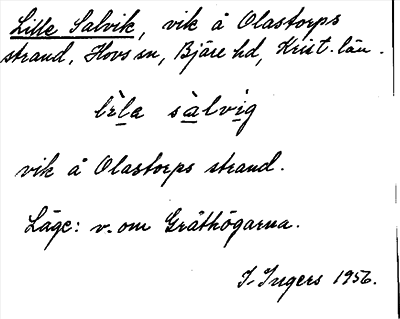 Lille Salvik, vik å Olastorps
strand, Hovs sn, Bjäre hd, Krist. län.
lèla sàlvig
vik å Olastorps strand.
Läge: v. om Gråthögarna.
I. Ingers 1956.